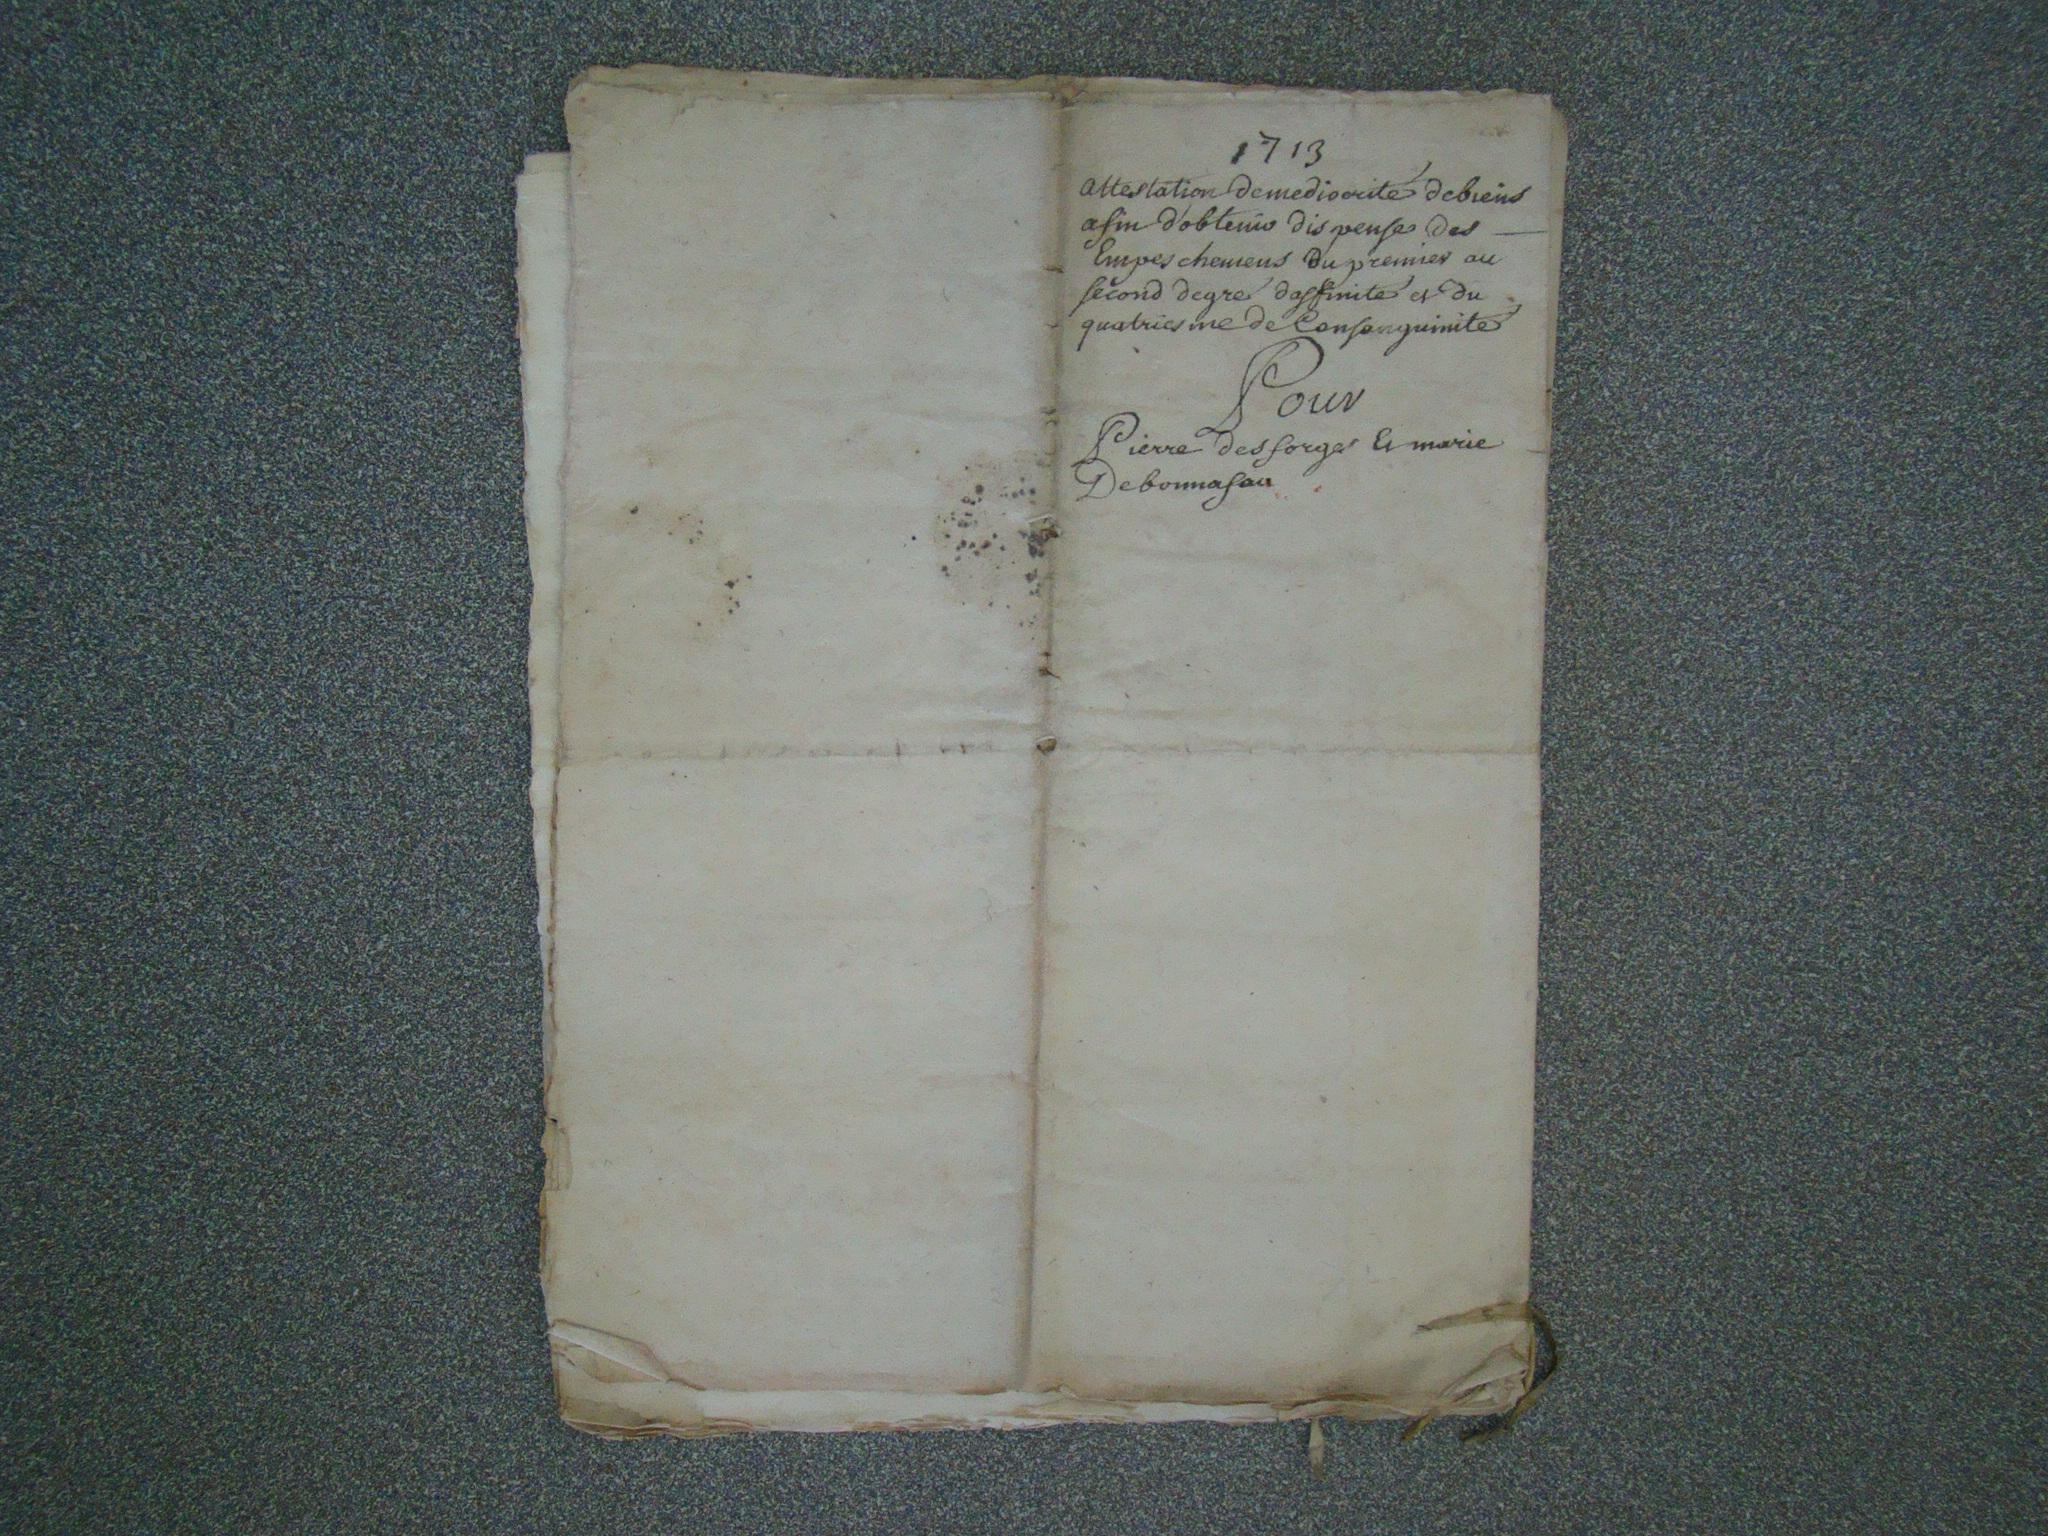 1713
attestation demediocrité debiens
afin d'obtenir dispense des
Empeschemens du premier au
second degré daffinité et du
quatriesme de Consanguinité
Pour
Pierre desforges Et marie
Debonnasau